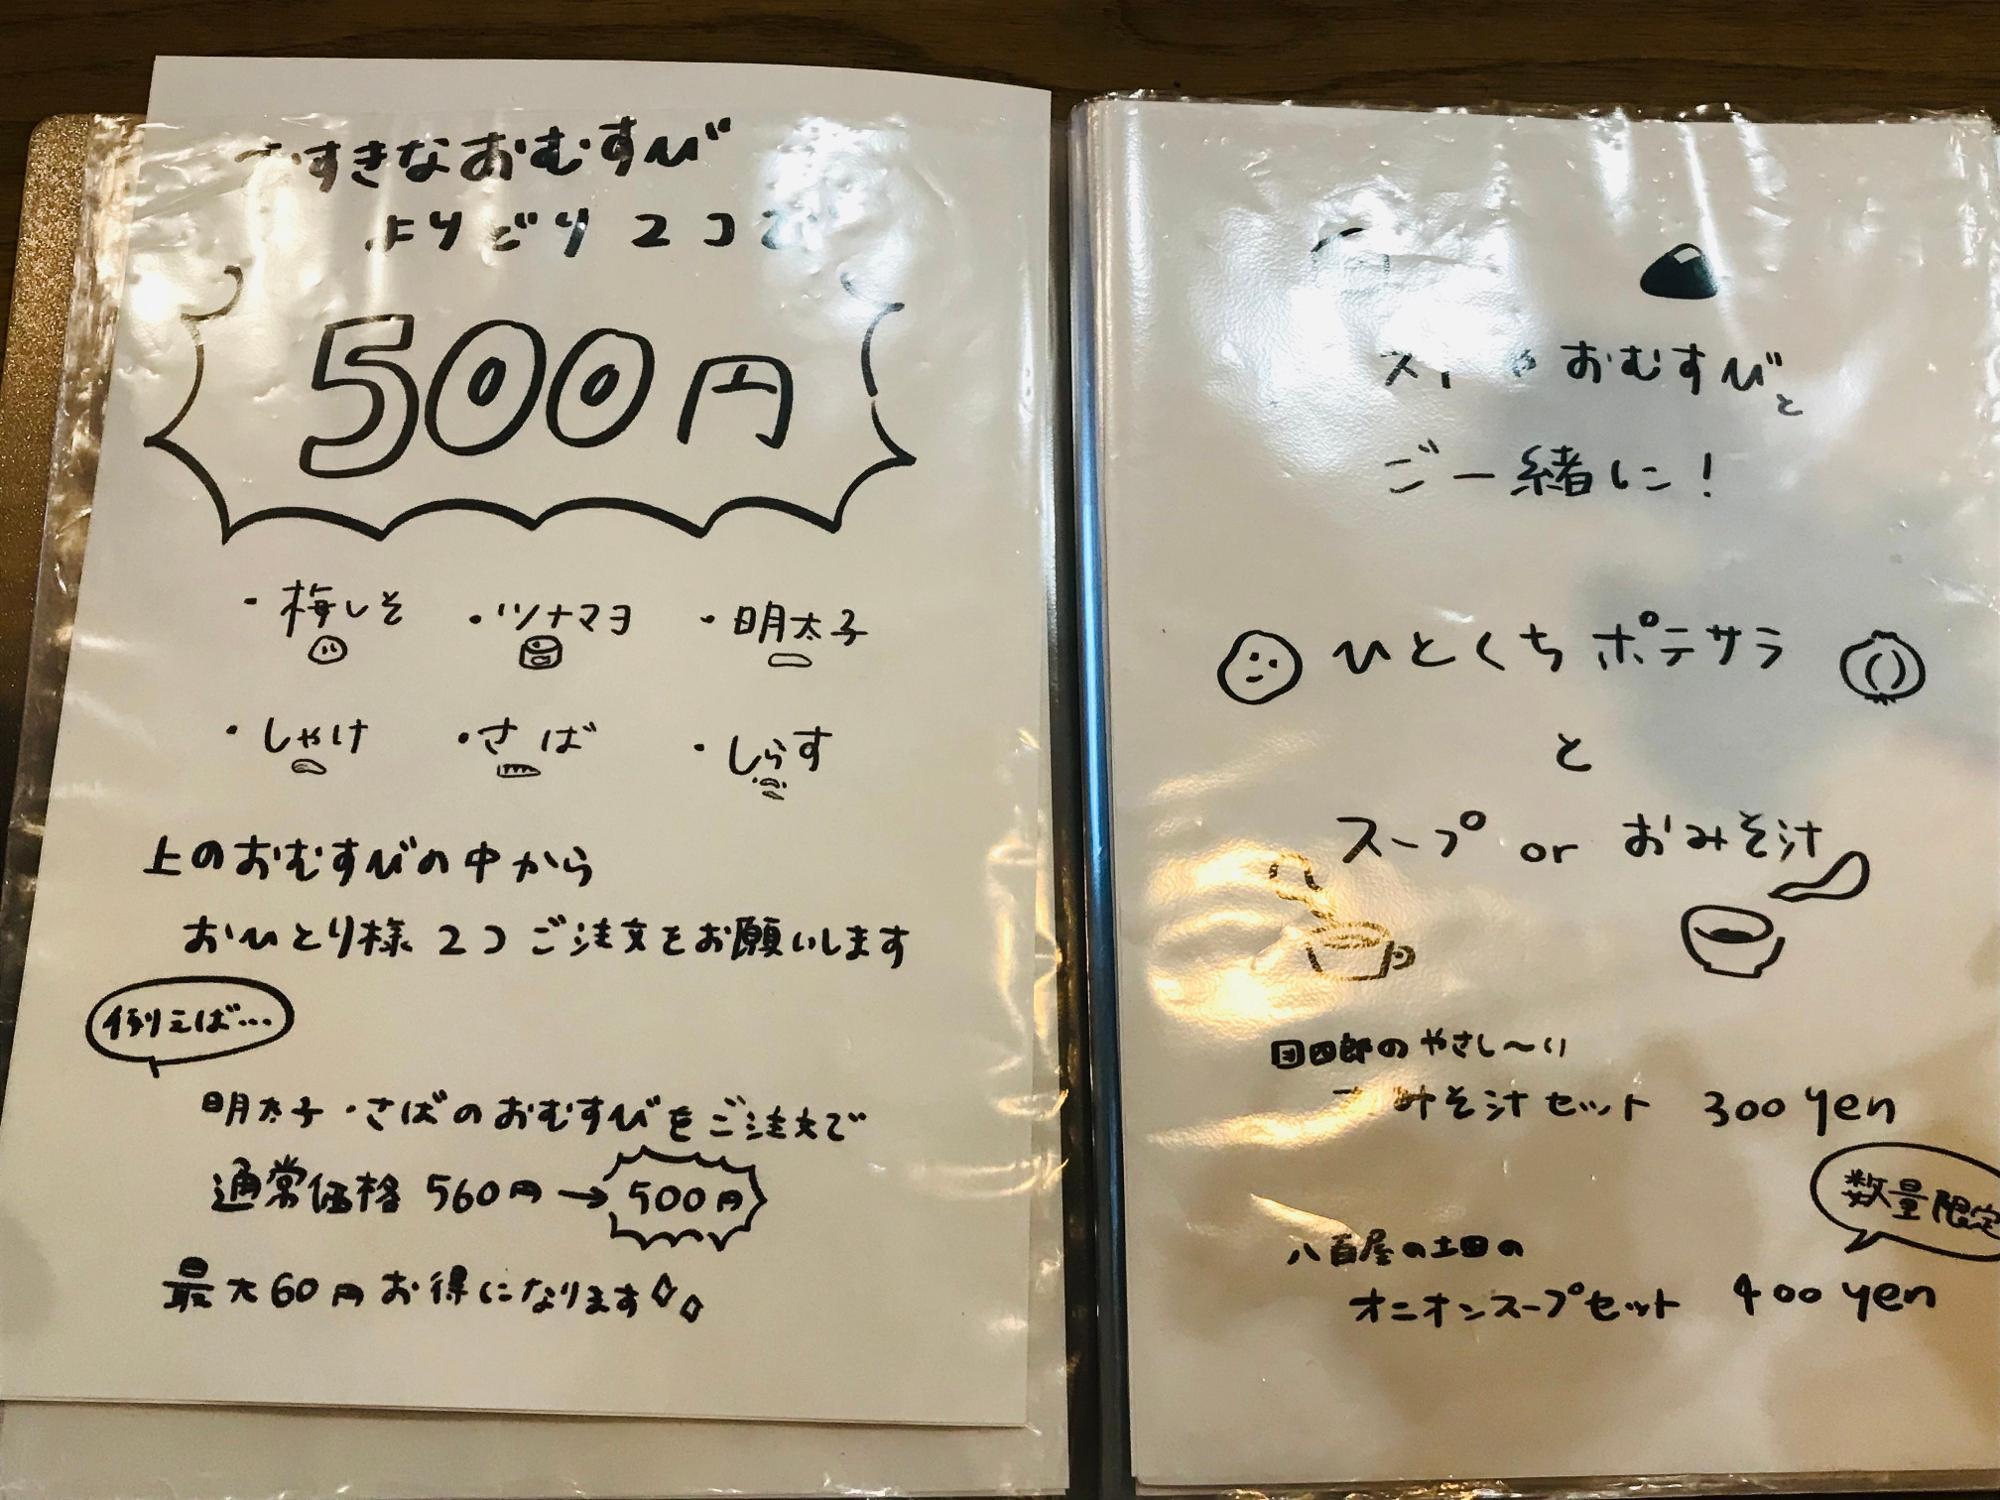 おすきなおむすび
よりどり2コで
500円
・梅しそ ・ツナマヨ ・明太子
・しゃけ ・さば ・しらす
上のおむすびの中から
おひとり様2コご注文をお願いします
例えば…
明太子・さばのおむすびをご注文で
通常価格 560円→500円
最大60円お得になります
おむすびと
ご一緒に！
ひとくちポテサラ
と
スープ or おみそ汁
団四郎のやさし〜い
おみそ汁セット 300 yen
数量限定
八百屋の土田の
オニオンスープセット 400 yen